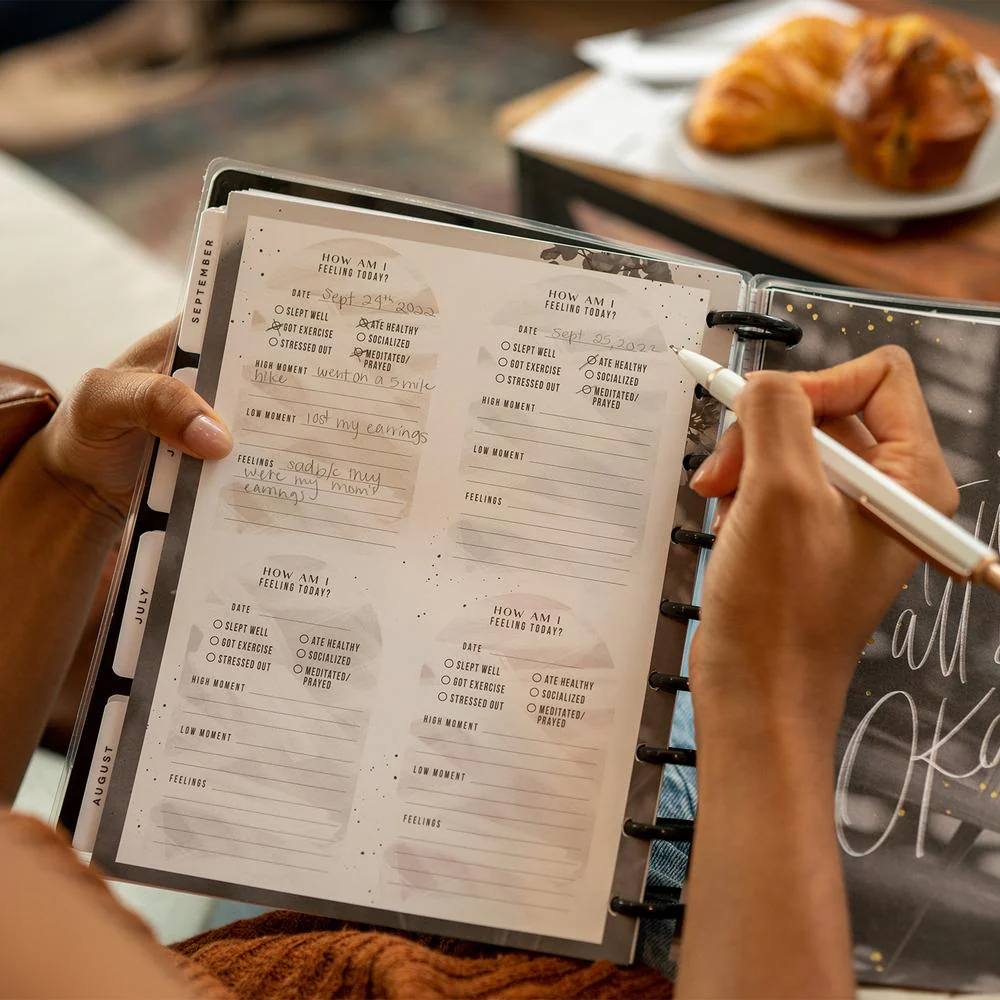 SEPTEMBER
JULY
AUGUST
HOW AM I
FEELING TODAY?
DATE Sept 24th 2022
SLEPT WELL
GOT EXERCISE
STRESSED OUT
ATE HEALTHY
SOCIALIZED
MEDITATED/
PRAYED
HIGH MOMENT went on a 5 mile
hike
LOW MOMENT lost my earrings
FEELINGS sad b/c they
were my mom's
earrings
HOW AM I
FEELING TODAY?
DATE Sept 25, 2022
SLEPT WELL
GOT EXERCISE
STRESSED OUT
ATE HEALTHY
SOCIALIZED
MEDITATED/
PRAYED
HIGH MOMENT
LOW MOMENT
FEELINGS
HOW AM I
FEELING TODAY?
DATE
SLEPT WELL
GOT EXERCISE
STRESSED OUT
ATE HEALTHY
SOCIALIZED
MEDITATED/
PRAYED
HIGH MOMENT
LOW MOMENT
FEELINGS
HOW AM I
FEELING TODAY?
DATE
SLEPT WELL
GOT EXERCISE
STRESSED OUT
ATE HEALTHY
SOCIALIZED
MEDITATED/
PRAYED
HIGH MOMENT
LOW MOMENT
FEELINGS
all